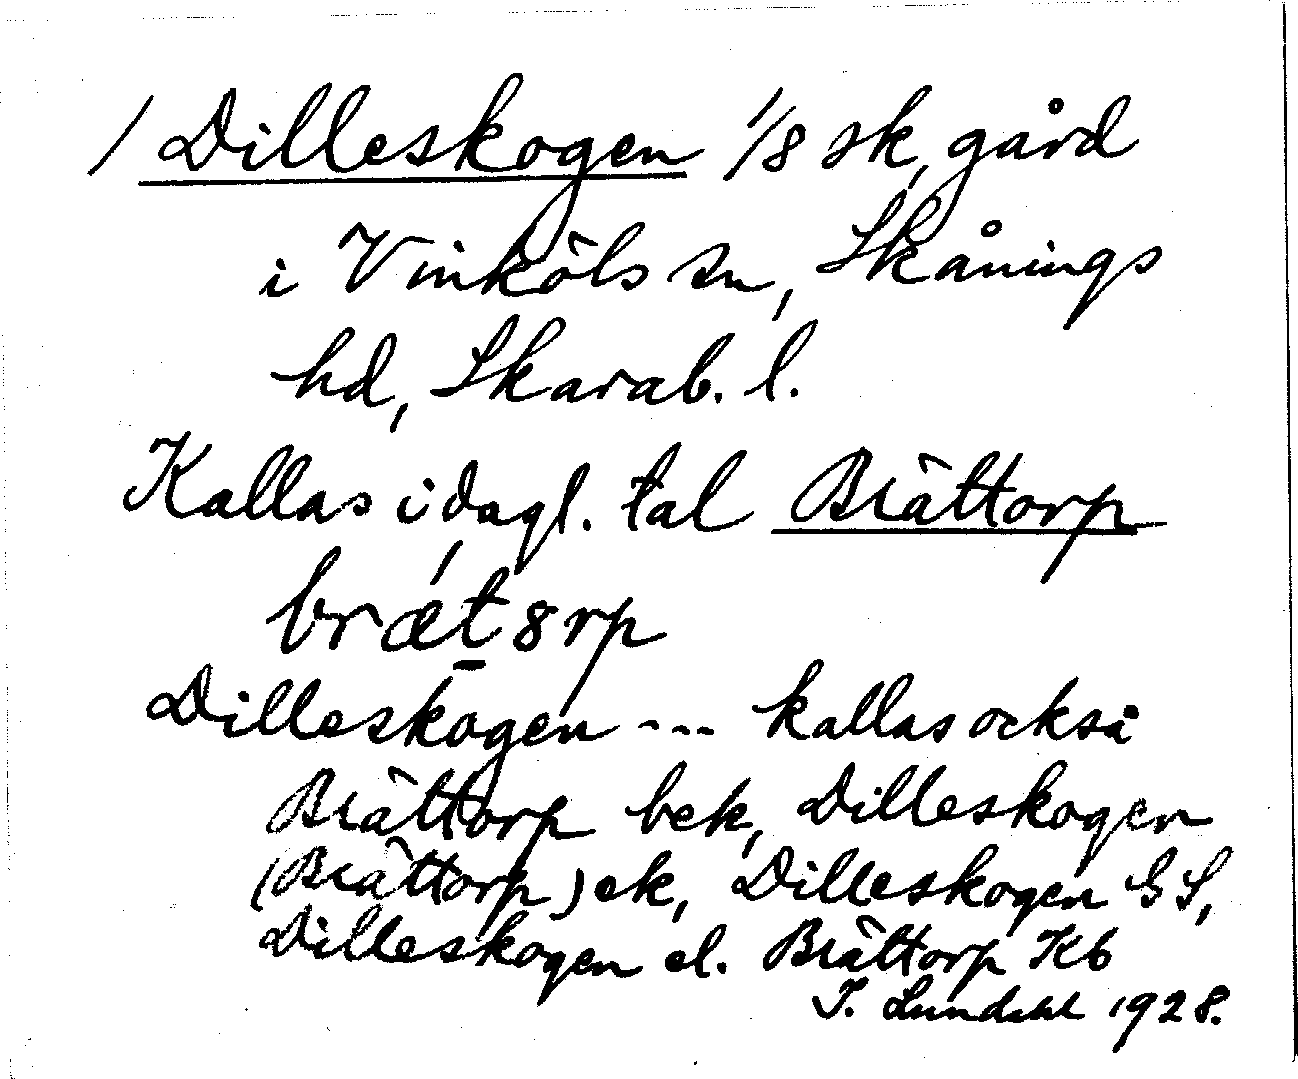 / Dilleskogen 1/8 sk, gård
i Vinköls sn, Skånings
hd, Skarab. l.
Kallas i dagl. tal Brättorp
bræt8rp
Dilleskogen --- kallas också
Brättorp bek, Dilleskogen
(Brättorp) ek, Dilleskogen GS,
Dilleskogen el. Brättorp Kb
I. Lundahl 1928.